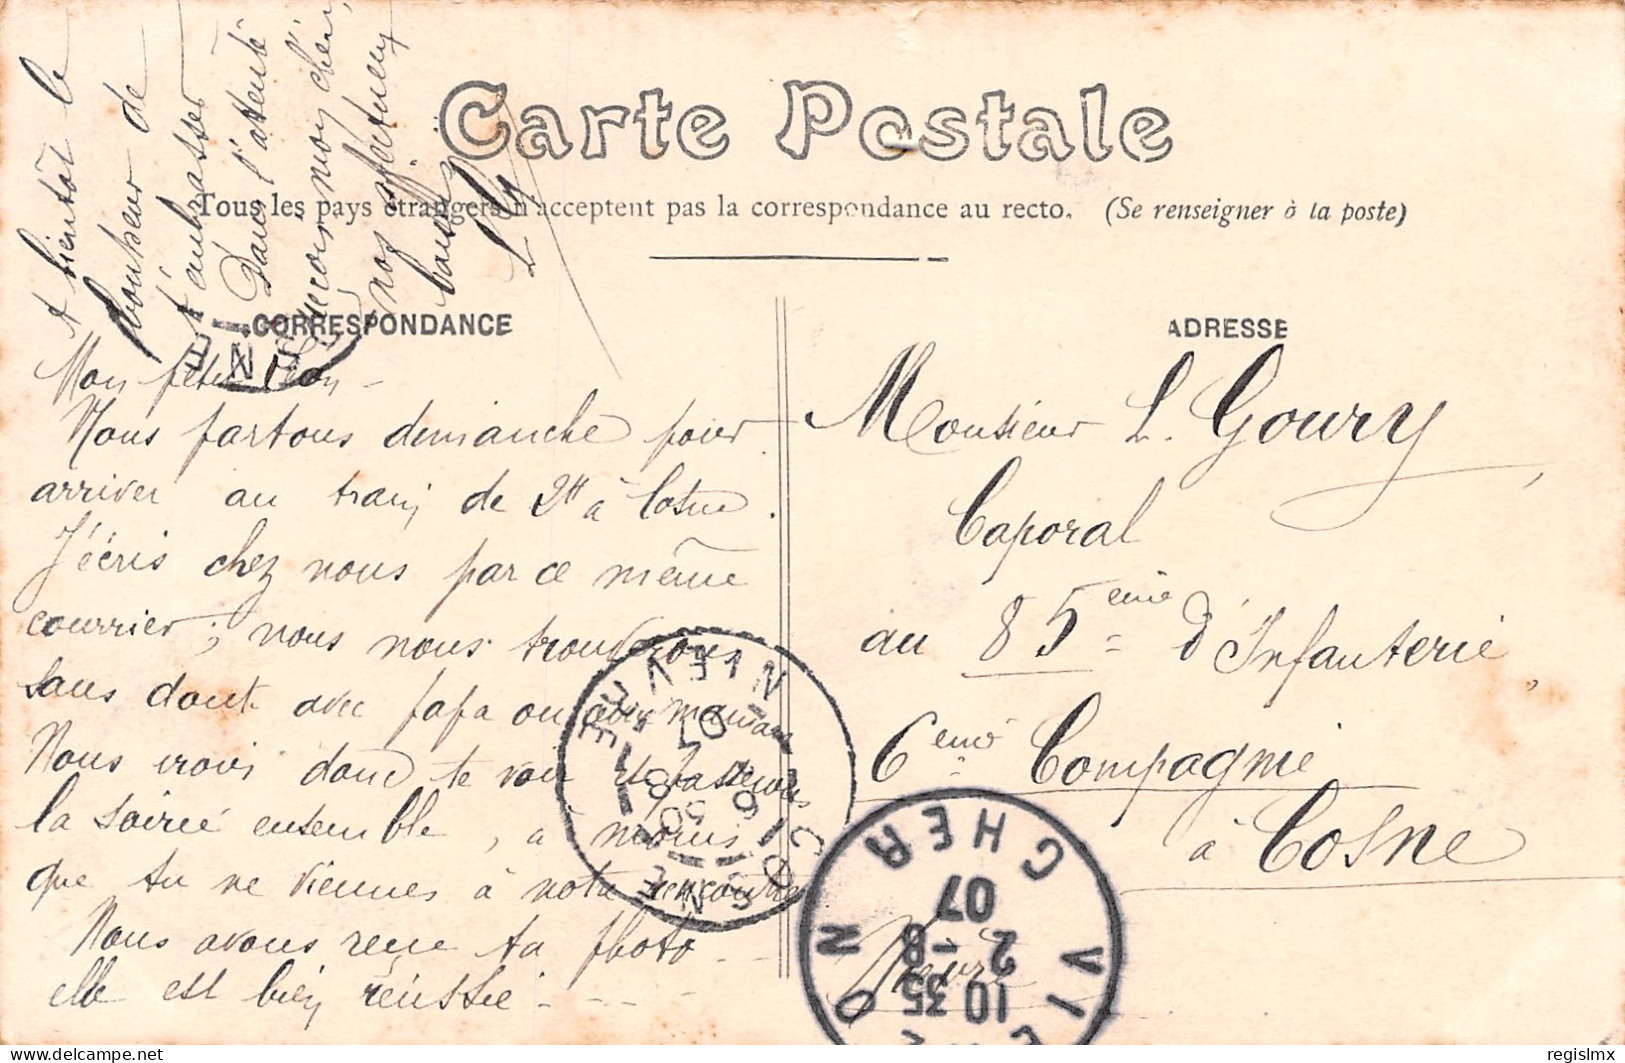 Carte Postale
Tous les pays étrangers n'acceptent pas la correspondance au recto. (Se renseigner à la poste)
CORRESPONDANCE
Mon petit Léon -
Nous partons dimanche pour
arriver au train de 2H à Cosne.
J'écris chez nous par ce même
courrier; nous nous trouverons
sans dout avec papa ou avec maman
Nous irons donc te voir et passerons
la soirée ensemble, à moins
que tu ne viennes à notre rencontre
Nous avons reçu ta photo - -
elle est bien réussie - - - -
A bientôt le
bonheur de
t'embrasser
Dans l'attente
reçois mon chéri,
nos affectueux
baisers
ADRESSE
Monsieur L. Goury,
Caporal
au 85eme d'Infanterie,
6eme Compagnie
à Cosne
Nièvre
COSNE
NIEVRE
07
VIERZON
CHER
10 35
2-8
07
regislmx
delcampe.net